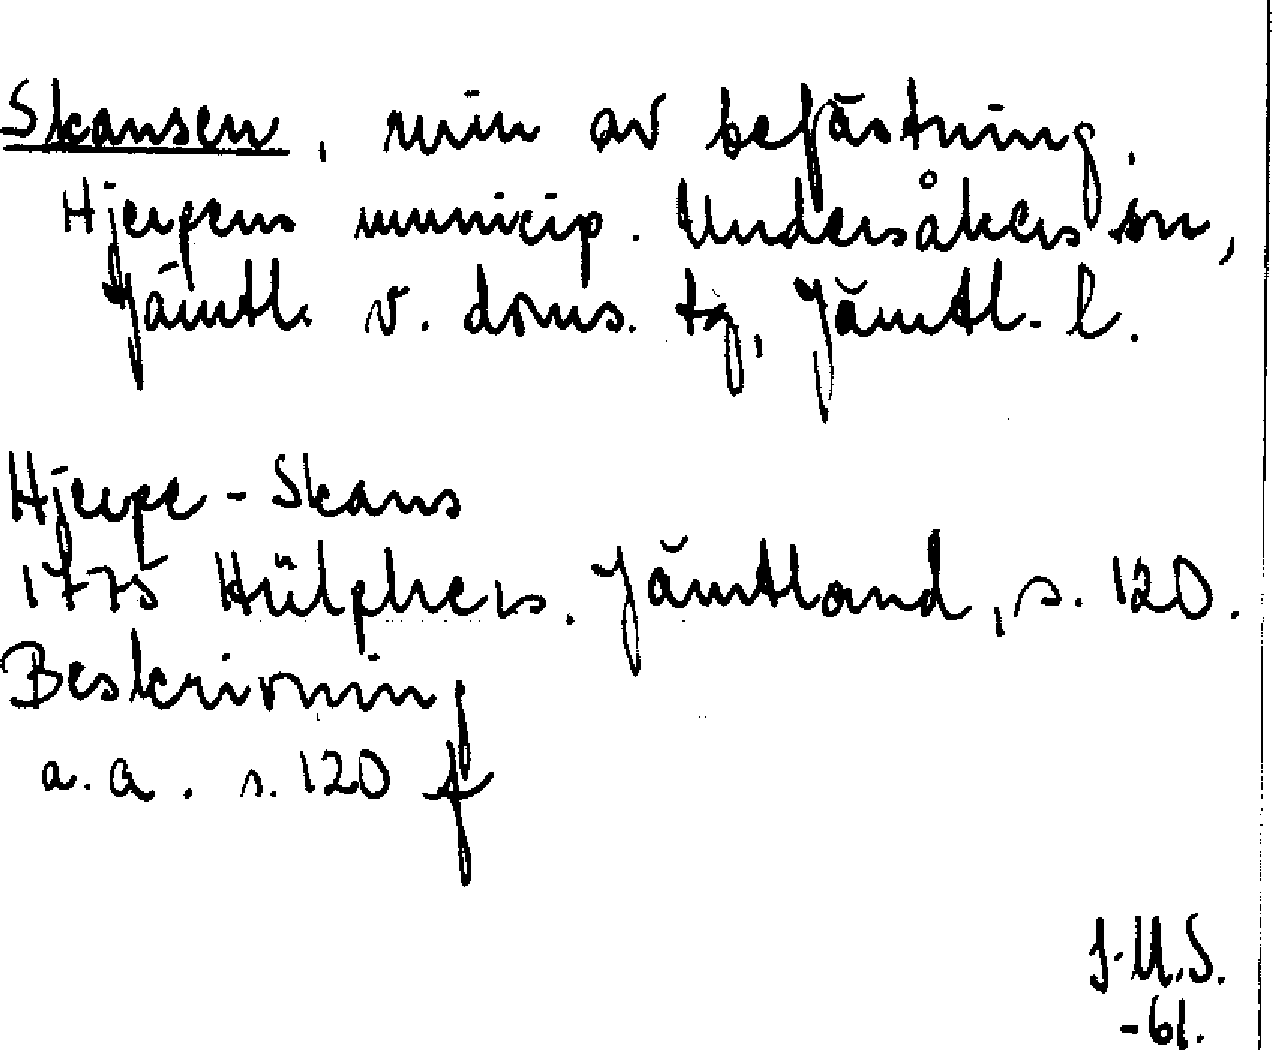 Skansen, ruin av befästning.
Hjerpens municip. Undersåkers sn,
Jämtl. v. doms. tg, Jämtl. l.
Hjerpe-Skans
1775 Hülphers. Jämtland, s. 120.
Beskrivning
a.a. s. 120 f
J.M.S.
-61.